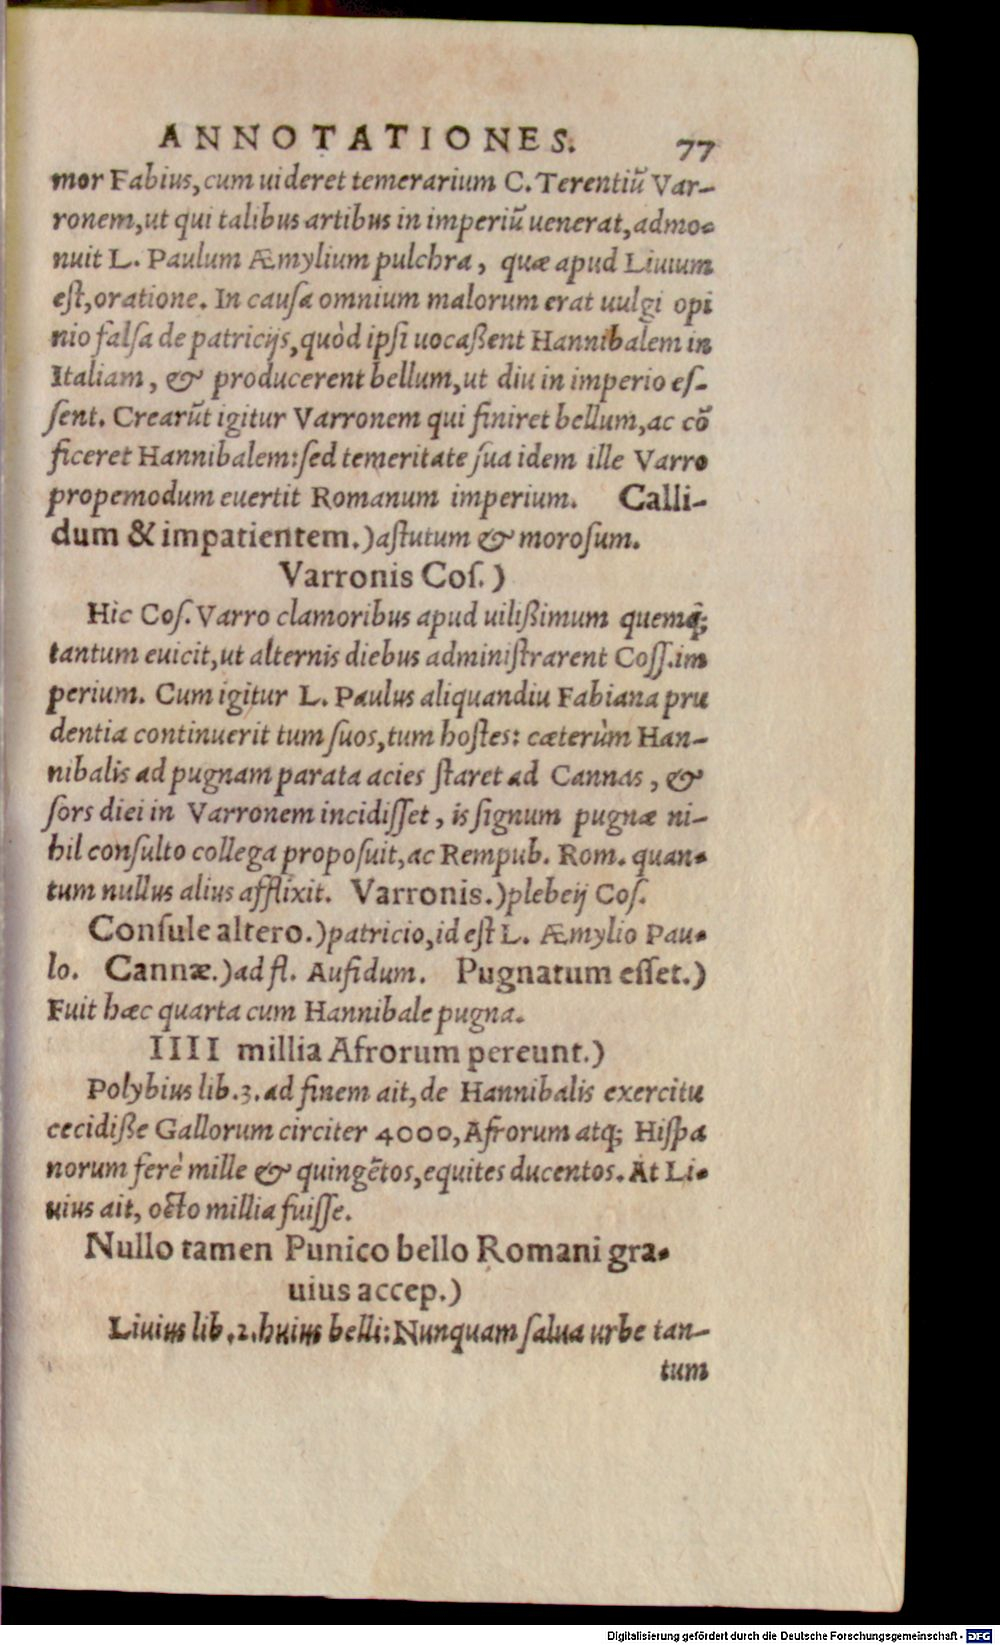 ANNOTATIONES. 77
mor Fabius, cum uideret temerarium C. Terentiũ Var-
ronem, ut qui talibus artibus in imperiũ uenerat, admo-
nuit L. Paulum Æmylium pulchra, quæ apud Liuium
eſt, oratione. In cauſa omnium malorum erat uulgi opi
nio falſa de patricijs, quòd ipſi uocaßent Hannibalem in
Italiam, & producerent bellum, ut diu in imperio eſ-
ſent. Crearũt igitur Varronem qui finiret bellum, ac cõ
ficeret Hannibalem: ſed temeritate ſua idem ille Varro
propemodum euertit Romanum imperium. Calli-
dum & impatientem.) aſtutum & moroſum.
Varronis Coſ.)
Hic Coſ. Varro clamoribus apud uilißimum quemq̃;
tantum euicit, ut alternis diebus adminiſtrarent Coſſ. im
perium. Cum igitur L. Paulus aliquandiu Fabiana pru
dentia continuerit tum ſuos, tum hoſtes: cæterùm Han-
nibalis ad pugnam parata acies ſtaret ad Cannas, &
ſors diei in Varronem incidiſſet, is ſignum pugnæ ni-
hil conſulto collega propoſuit, ac Rempub. Rom. quan-
tum nullus alius afflixit. Varronis.) plebeij Coſ.
Conſule altero.) patricio, id eſt L. Æmylio Pau-
lo. Cannæ.) ad fl. Aufidum. Pugnatum eſſet.)
Fuit hæc quarta cum Hannibale pugna.
IIII millia Afrorum pereunt.)
Polybius lib. 3. ad finem ait, de Hannibalis exercitu
cecidiße Gallorum circiter 4000, Afrorum atq; Hiſpa
norum ferè mille & quingẽtos, equites ducentos. At Li-
uius ait, octo millia fuiſſe.
Nullo tamen Punico bello Romani gra-
uius accep.)
Liuius lib. 2. huius belli: Nunquam ſalua urbe tan-
tum
Digitalisierung gefördert durch die Deutsche Forschungsgemeinschaft - DFG